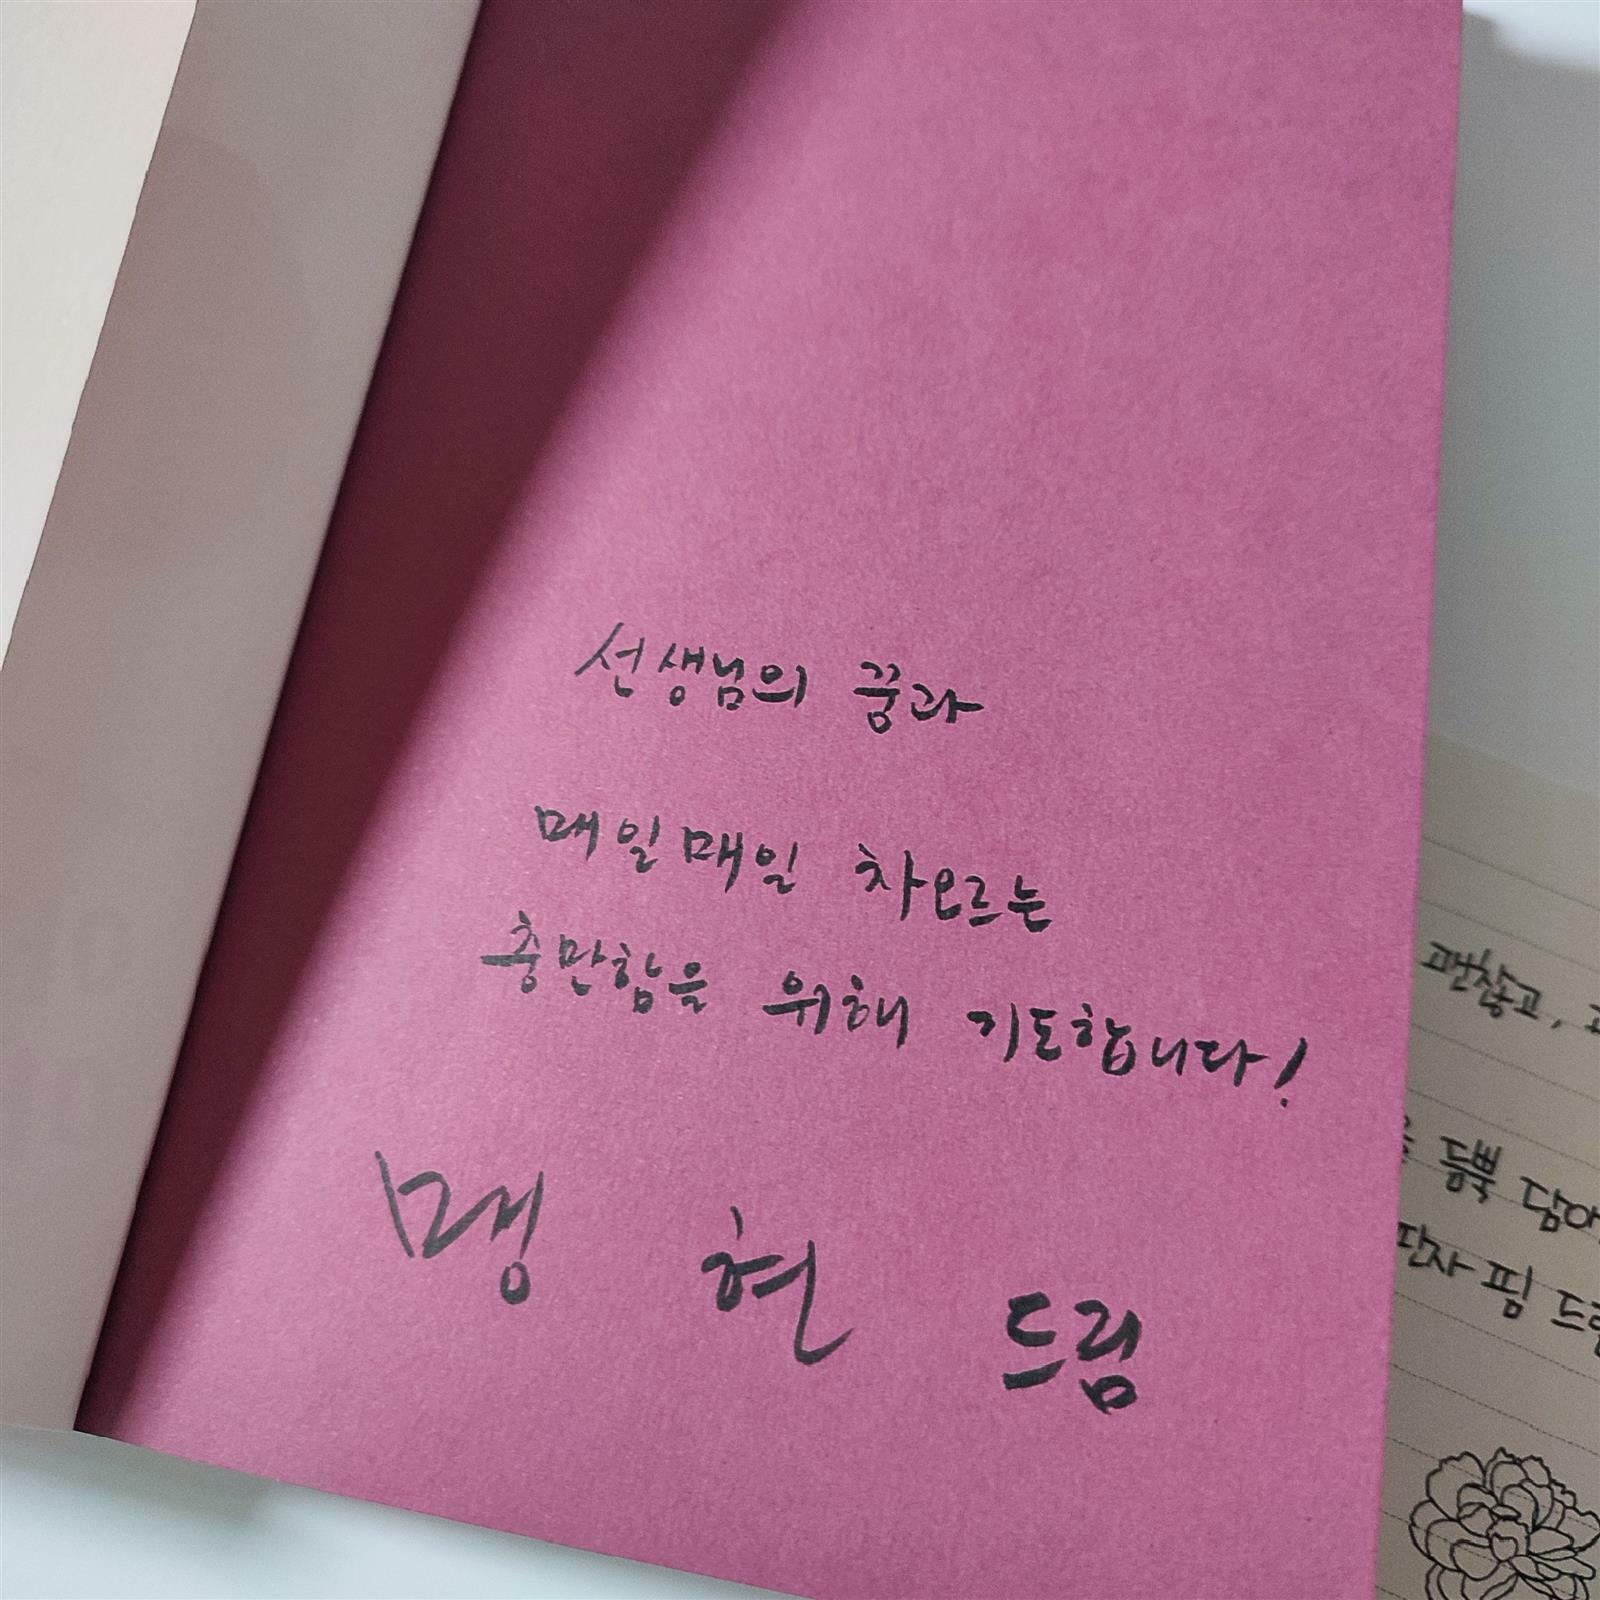 선생님의 꿈과
매일매일 차오르는
충만함을 위해 기도합니다!
맹 현 드림
괜찮고,
듬뿍 담아
판사 핌 드림